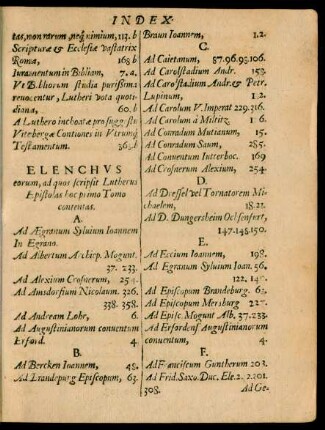 INDEX.
tas, non rarum, neq; nimium, 113. b
Scripturæ & Ecclesiæ vastatrix
Roma, 168 b
Iuramentum in Bibliam, 7. a.
Vt Bibliorum studia purissima
reuocentur, Lutheri vota quoti-
diana, 60. b
A Luthero inchoatæ pro sugg. stu
Vitebergæ Contiones in Vtrumq;
Testamentum. 363. b
ELENCHVS
eorum, ad quos scripsit Lutherus
Epistolas hoc primo Tomo
contentas.
Ad Ægranum Syluium Ioannem
In Egrano.
Ad Albertum Archiep. Mogunt.
37. 233.
Ad Alexium Crosnerum, 254.
Ad Amsdorfium Nicolaum. 326.
338. 358.
Ad Andream Lohr, 6.
Ad Augustinianorum conuentum
Erford. 4.
B.
Ad Bercken Ioannem, 48.
Ad Brandeburg Episcopum, 63.
Braun Ioannem, 1. 2.
C.
Ad Caietanum, 87. 96. 98. 106.
Ad Carolstadium Andr. 153.
Ad Carolstadium Andr. & Petr.
Lupinum, 1. 2.
Ad Carolum V. Imperat 229. 316.
Ad Carolum à Miltitz. 1 6.
Ad Conradum Mutianum, 15.
Ad Conradum Saum, 285.
Ad Conuentum Iutterboc. 169
Ad Crosnerum Alexium, 254
D.
Ad Dressel vel Tornatorem Mi-
chaelem, 18. 21.
Ad D. Dungersheim Ochsenfart,
147. 148. 150.
E.
Ad Eccium Ioannem, 198.
Ad Egranum Syluium Ioan. 56.
Ad Episcopum Brandeburg. 63.
Ad Episcopum Mersburg 227.
Ad Episc. Mogunt Alb. 37. 233.
Ad Erfordenses Augustinianorum
conuentum, 4.
F.
Ad Franciscum Guntherum 203.
Ad Frid. Saxo. Duc. Ele. 2. 2. 201.
308. Ad Ge.